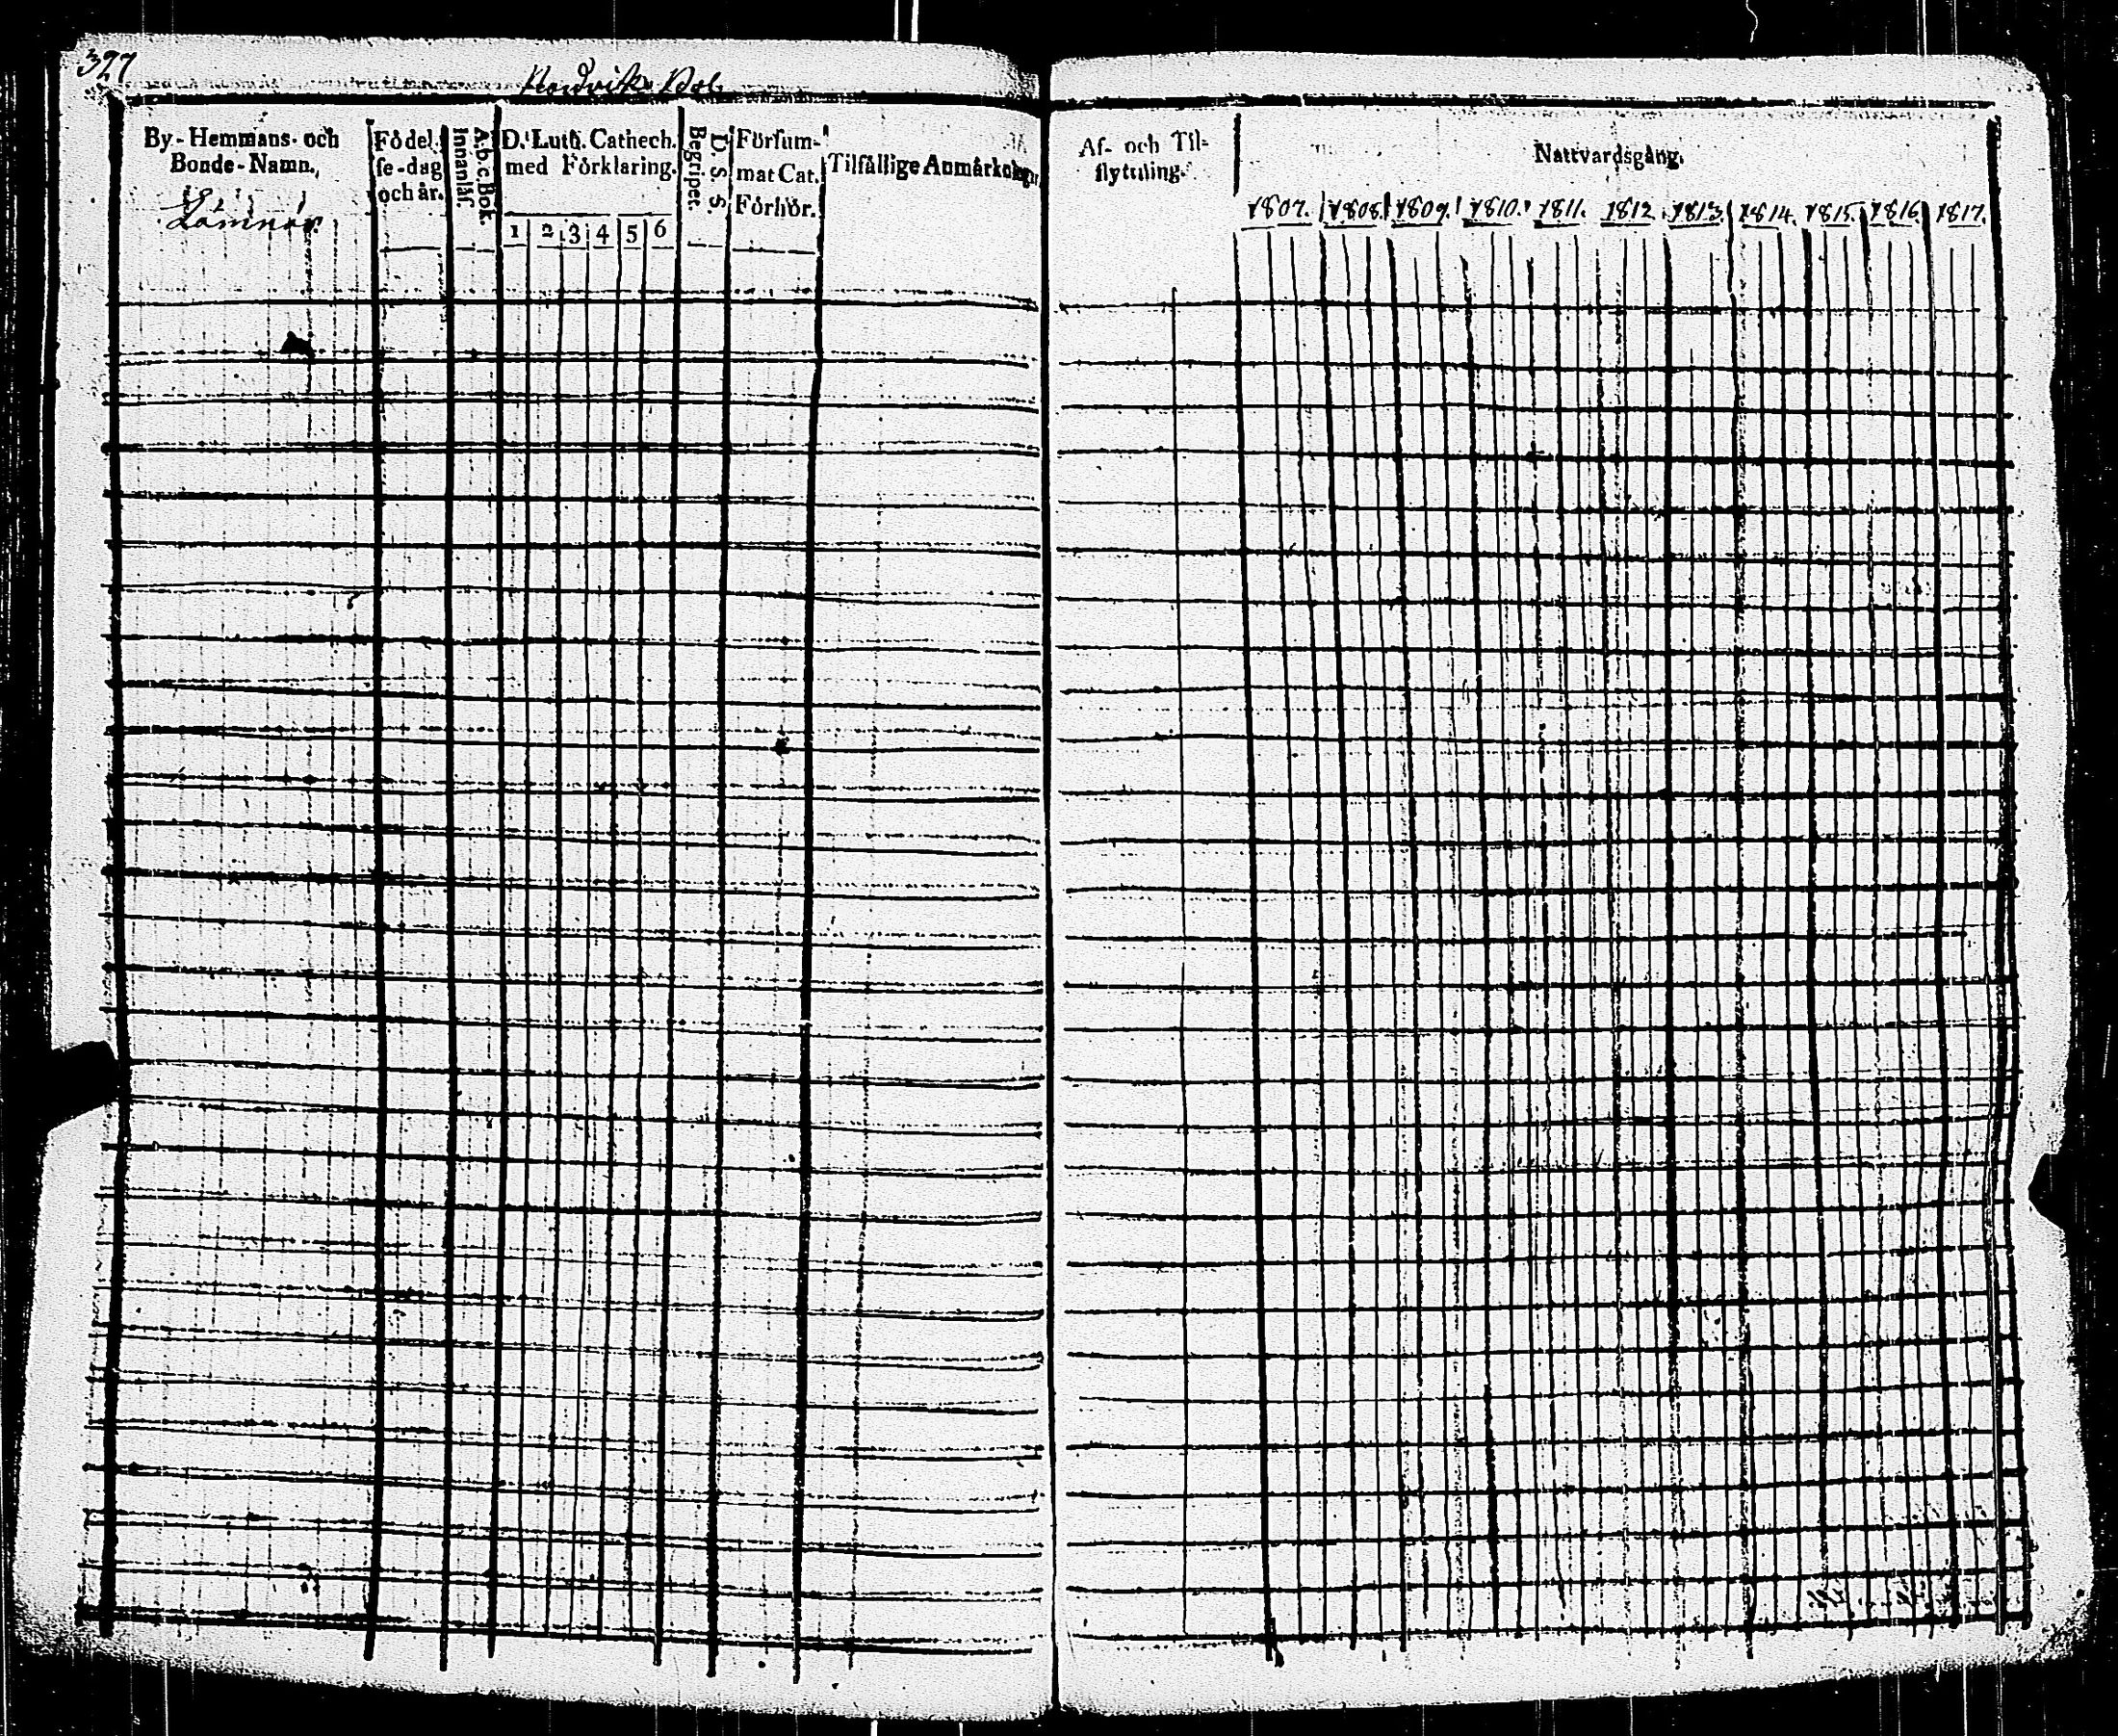 327
Nordvik Bol.
By-Hemmans- och
Bonde-Namn.
Lömnäs.
Födel-
se-dag
och år.
A.b.c.Bok.
Innanläs.
D. Luth. Cathech.
med Förklaring.
1 2 3 4 5 6
D. S. S.
Begriper.
Försum-
mat Cat.
Förhör.
Tilfällige Anmärkningar.
Af- och Til-
flyttning.
Nattvardsgång.
1807. 1808. 1809. 1810. 1811. 1812. 1813. 1814. 1815. 1816. 1817.